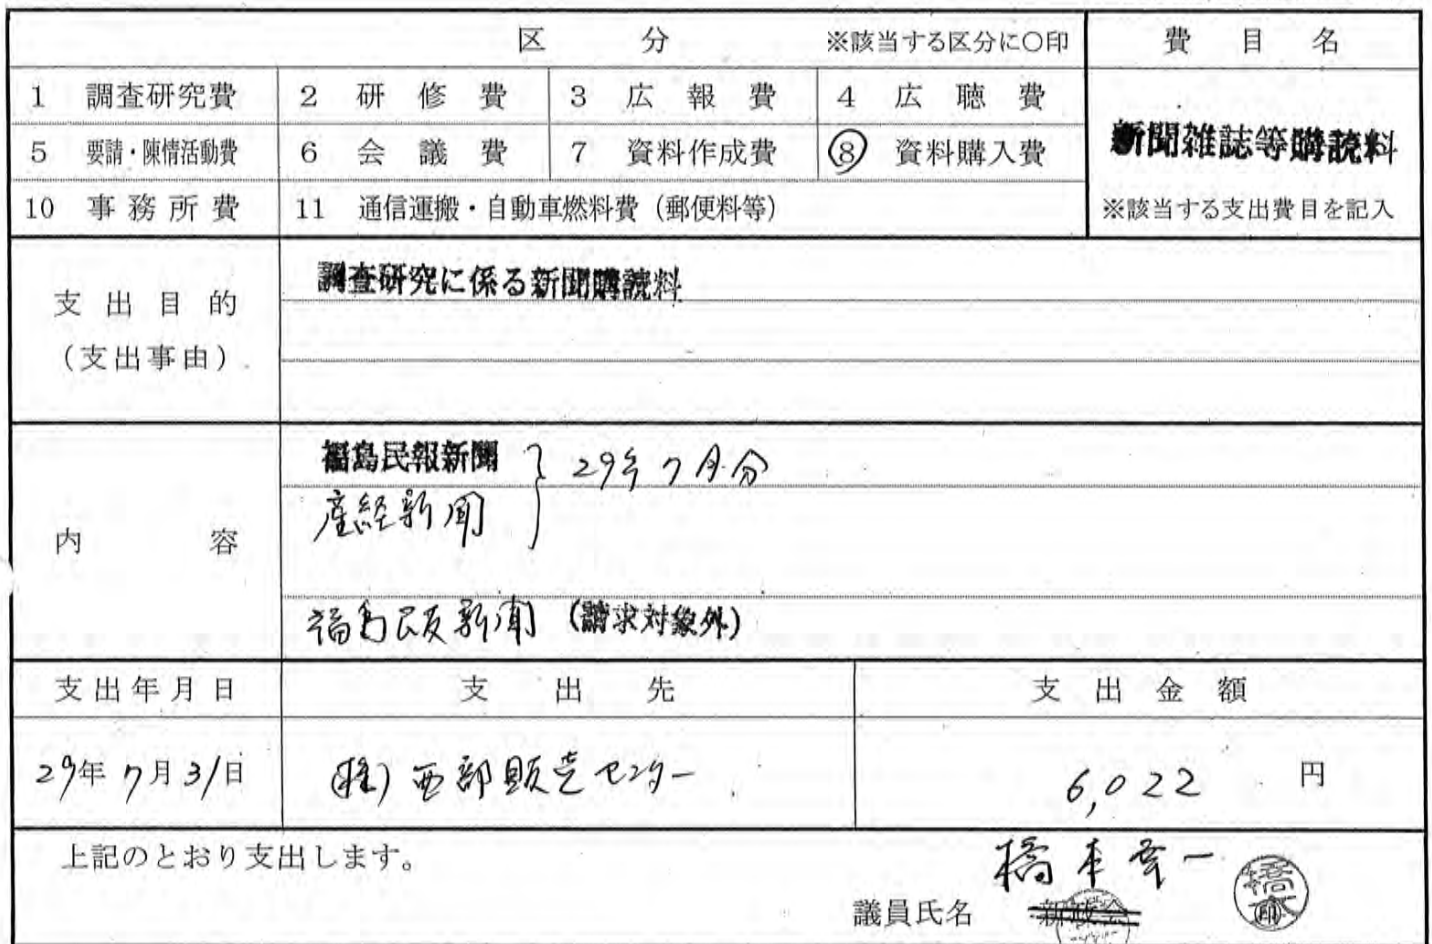 区 分 ※該当する区分に〇印 費目名
1 調査研究費 2 研修費 3 広報費 4 広聴費
5 要請・陳情活動費 6 会議費 7 資料作成費 ⑧ 資料購入費
新聞雑誌等購読料
10 事務所費 11 通信運搬・自動車燃料費（郵便料等）
※該当する支出費目を記入
支出目的
（支出事由）
調査研究に係る新聞購読料
内容
福島民報新聞 } 29年7月分
産経新聞
福島民友新聞 (請求対象外)
支出年月日 支出先 支出金額
29年7月31日 (株)西部販売センター 6,022 円
上記のとおり支出します。
橋本幸一
議員氏名 新政会
橋本